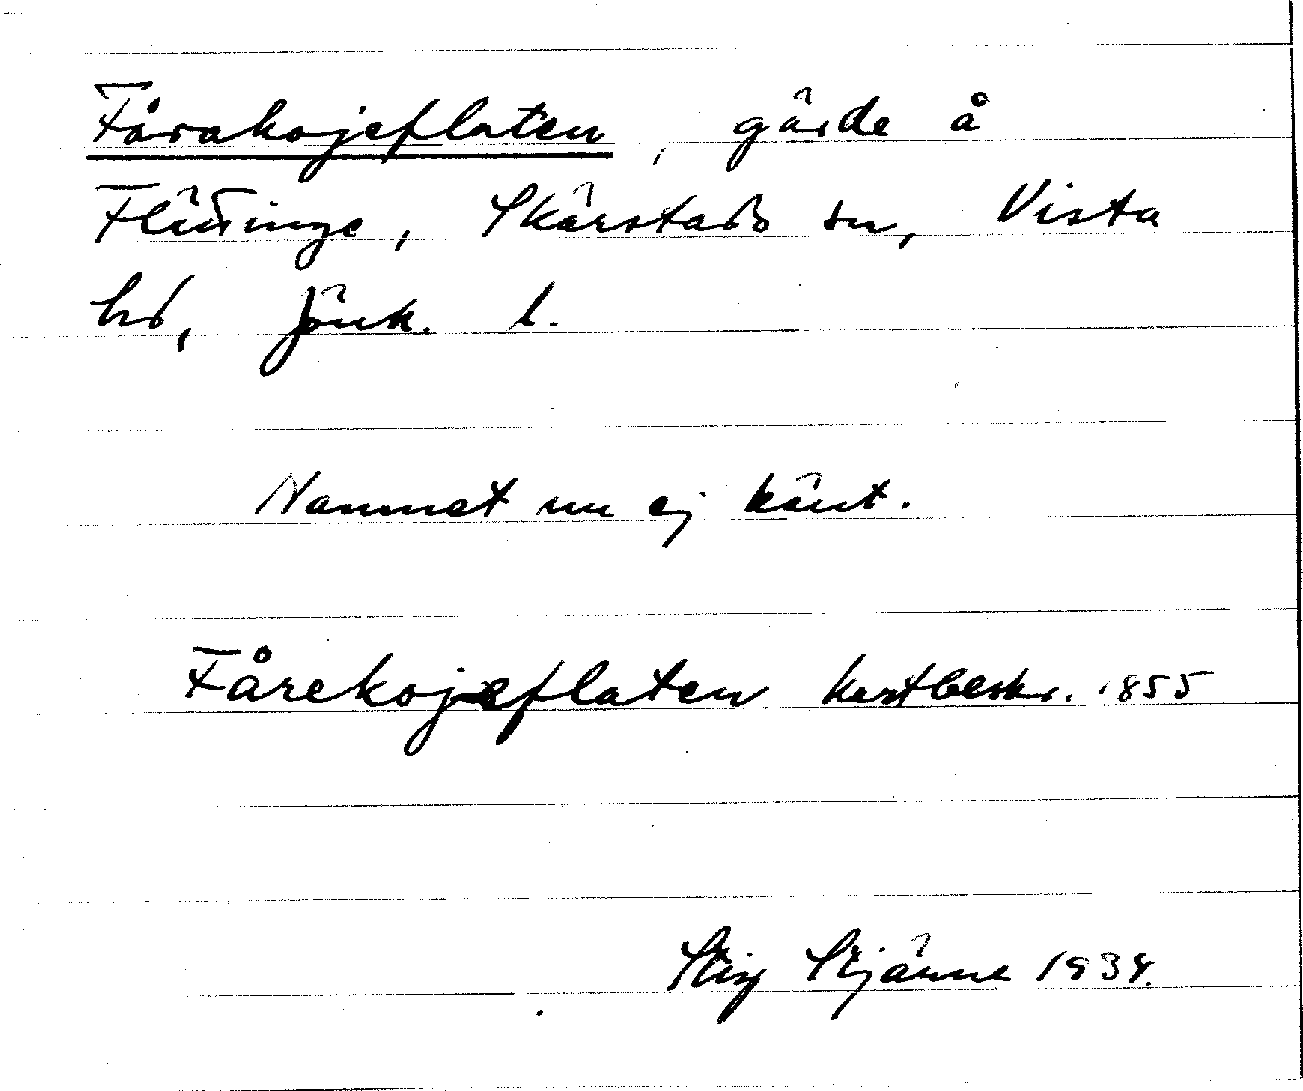 Fårakojeflaten, gärde å
Flättinge, Skärstads sn, Vista
hd, Jönk. l.
Namnet nu ej känt.
Fårekojeflaten kartbeskr. 1855
Stig Stjärne 1934.